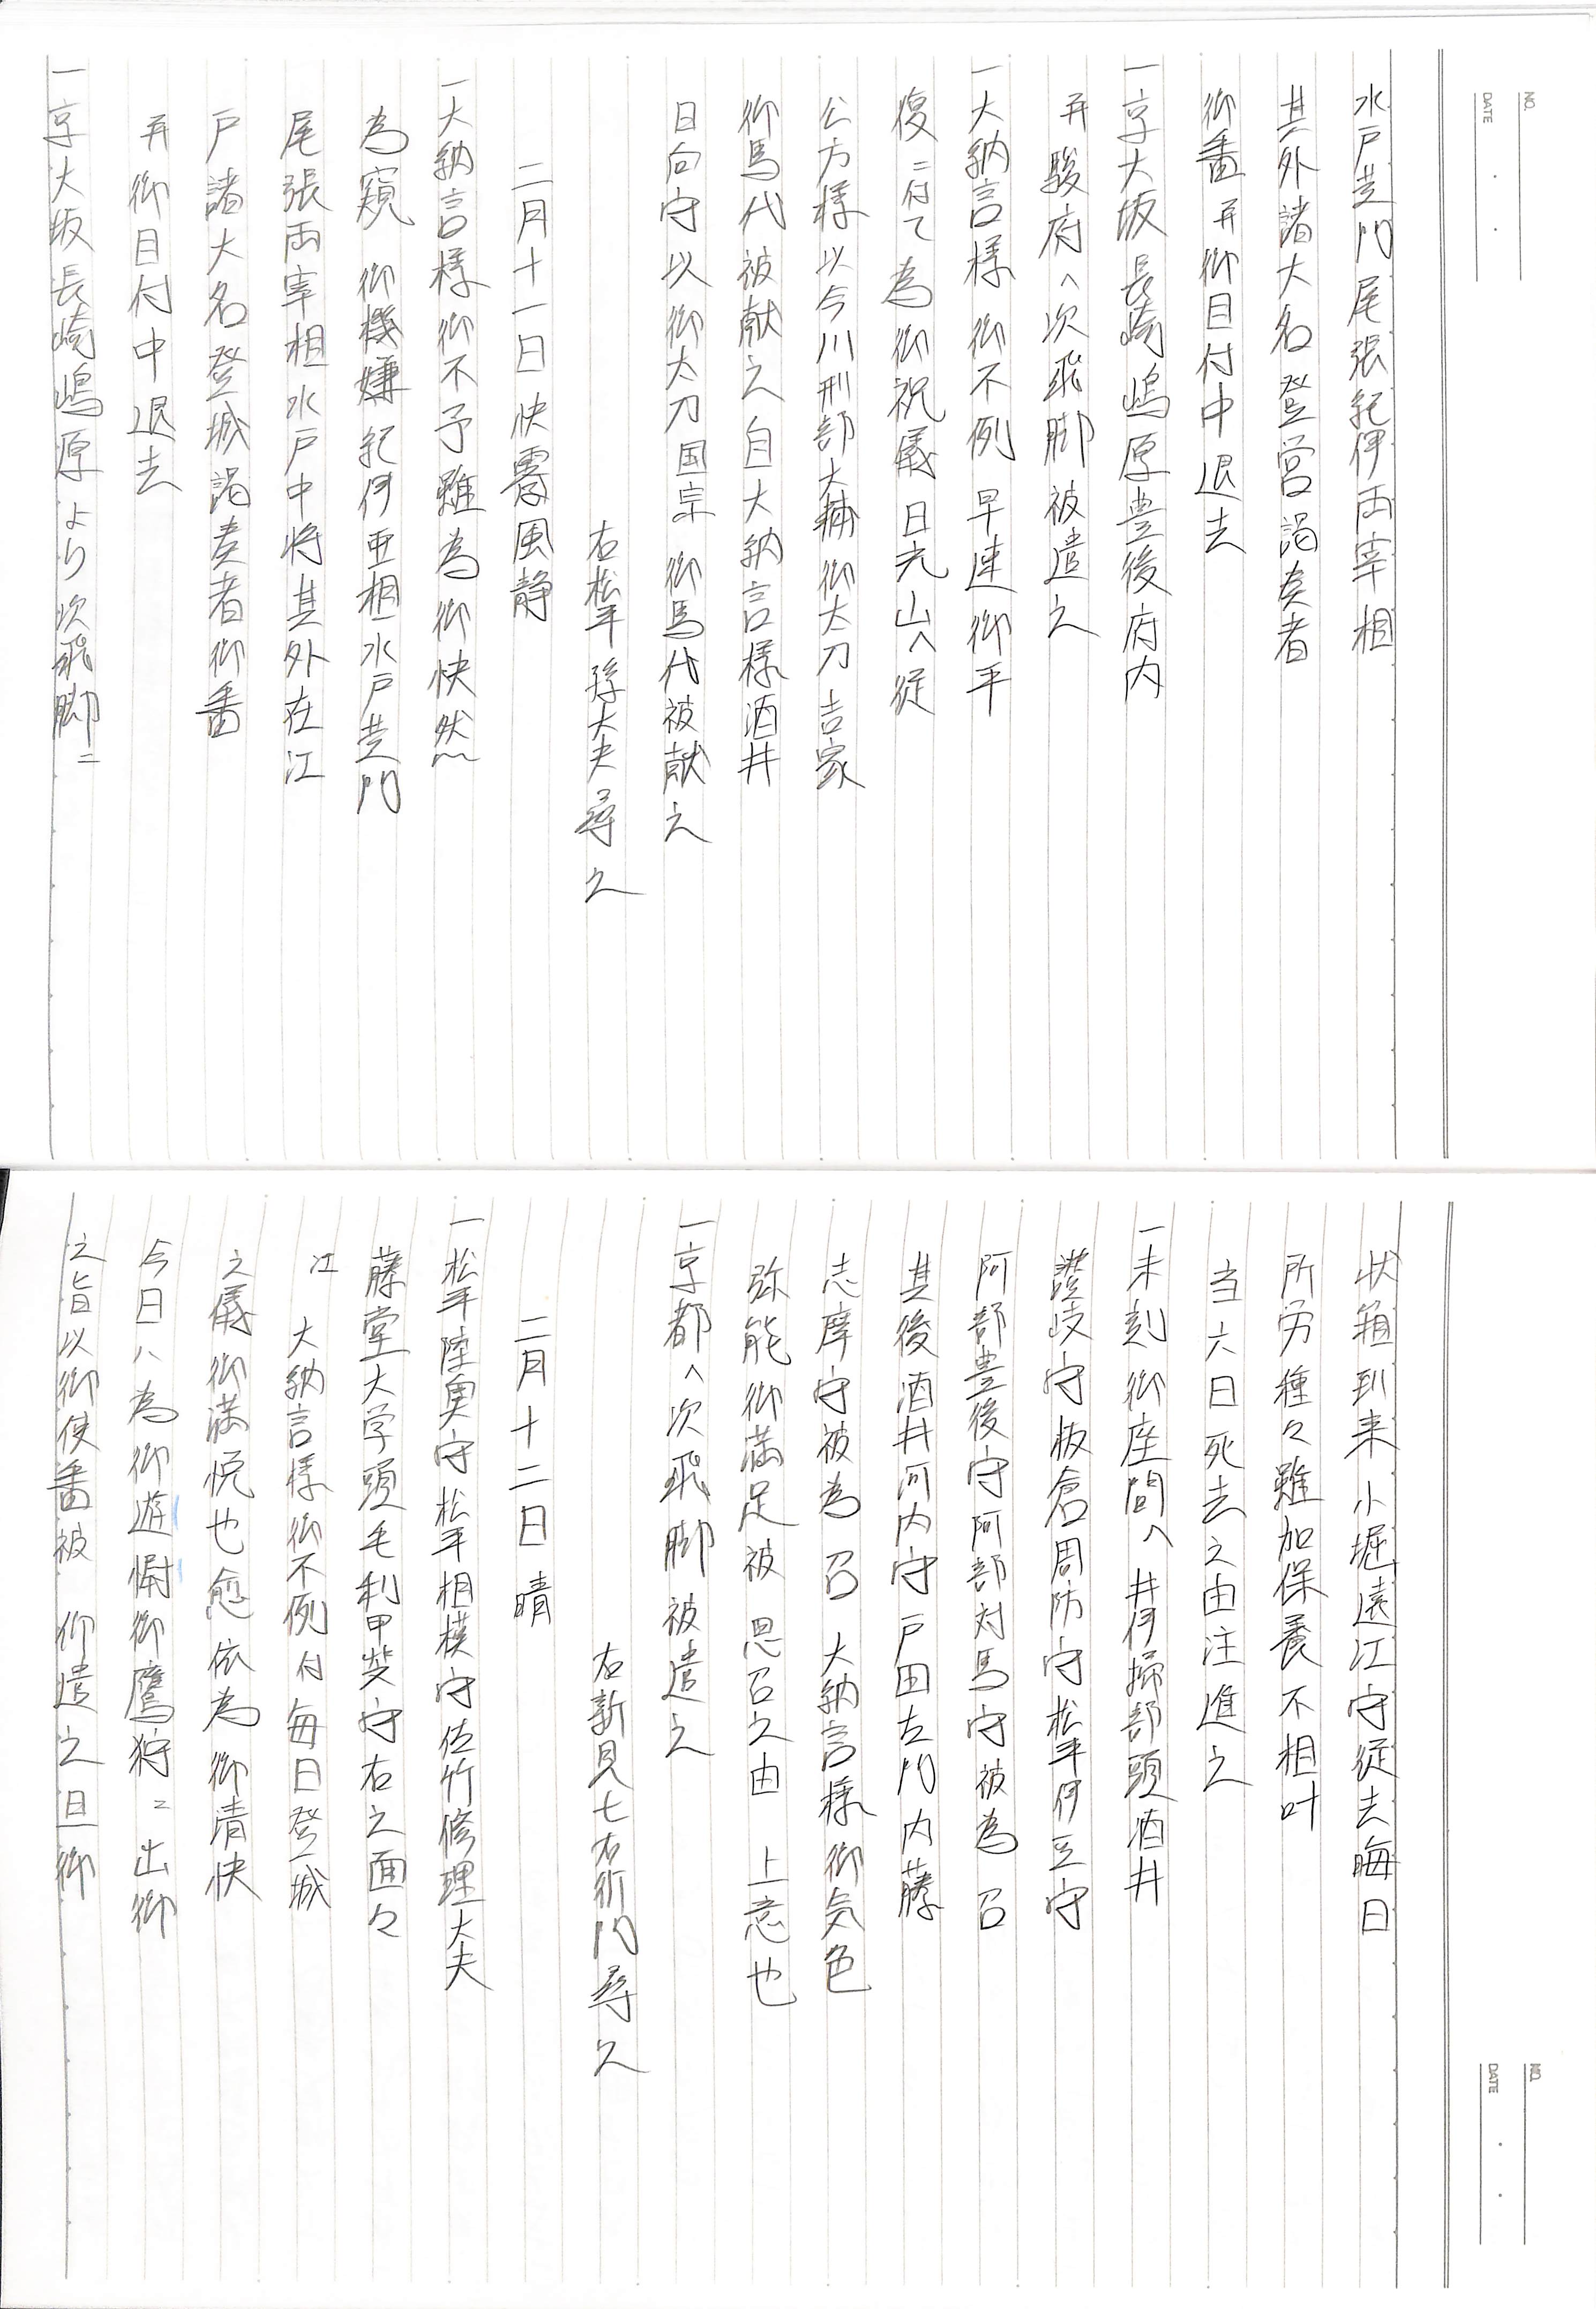 NO.
DATE
水戸黄門尾張紀伊両宰相
其外諸大名登営謁奏者
御番并御目付中退去
一京大坂長崎嶋原豊後府内
并駿府へ次飛脚被遣之
一大納言様御不例早速御平
復ニ付て為御祝儀日光山へ従
公方様以今川刑部大輔御太刀吉家
御馬代被献之自大納言様酒井
日向守以御太刀国宗御馬代被献之
右松平孫大夫尋之
二月十一日快霽風静
一大納言様御不予雖為御快然
為窺 御機嫌紀伊亜相水戸黄門
尾張両宰相水戸中将其外在江
戸諸大名登城謁奏者御番
并御目付中退去
一京大坂長崎嶋原より次飛脚ニ
NO.
DATE
状箱到来小堀遠江守従去晦日
所労種々雖加保養不相叶
当六日死去之由注進之
一未刻御座間へ井伊掃部頭酒井
讃岐守板倉周防守松平伊豆守
阿部豊後守阿部対馬守被為 召
其後酒井河内守戸田左門内藤
志摩守被為 召 大納言様御気色
弥能御満足被 思召之由 上意也
一京都へ次飛脚被遣之
右新見七右衛門尋之
二月十二日 晴
一松平陸奥守松平相模守佐竹修理大夫
藤堂大学頭毛利甲斐守右之面々
江 大納言様御不例付毎日登城
之儀御満悦也愈依為御清快
今日ハ為御遊慰御鷹狩ニ出御
之旨以御使番被 仰遣之且御